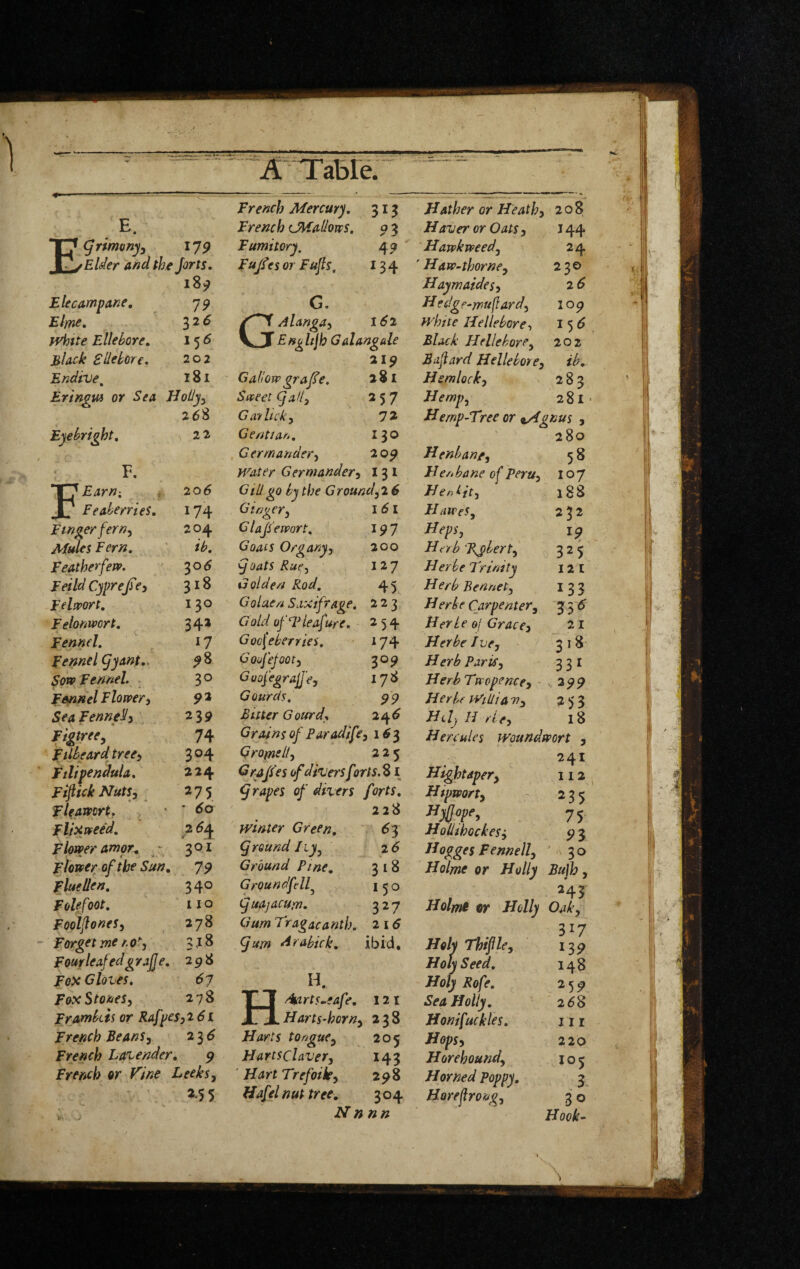 A Table.
E.
EGrimony, 179
Elder and the sorts.
189
Elecampane. 79
Elme. 326
White Ellebore. 156
Black Ellebore. 202
Endive. 181
Eringus or Sea Holly,
268
Eyebright. 22
F.
FEarn. 206
Feaberries. 174
Finger fern, 204
Mules Fern. ib.
Featherfew. 306
Feild Cypresse, 318
Felwort. 130
Felonwort. 342
Fennel. 17
Fennel Gyant. 98
Sow Fennel. 30
Fennel Flower, 92
Sea Fennell, 239
Figtree, 74
Filbeard tree, 304
Filipendula. 224
Fistick Nuts, 275
Fleawort. 60
Flixweed. 264
Flower amor. 301
Flower of the Sun. 79
Fluellen. 340
Folefoot. 110
Foolstones, 278
Forget me not, 318
Fourleafedgrasse. 298
Fox Gloves. 67
Fox Stones, 278
Frambois or Raspes, 261
French Beans, 236
French Lavender. 9
French or Vine Leeks,
255
French Mercury. 313
French Mallows. 93
Fumitory. 49
Fusses or Fusls. 134
G.
GAlanga, 162
English Galangale
219
Gallow grasse. 281
Sweet Gall, 257
Garlick, 72
Gentian. 130
Germander, 209
Water Germander, 131
Gill go by the Ground, 26
Ginger, 161
Glassewort. 197
Goats Organy, 200
Goats Rue, 127
Golden Rod. 45
Golden Saxifrage. 223
Gold of Pleasure. 254
Gooseberries. 174
Goosefoot, 309
Goosegrasse, 178
Gourds. 99
Bitter Gourd, 246
Grains of Paradise, 163
Gromell, 225
Grasses of divers sorts. 81
Grapes of divers sorts.
228
Winter Green. 63
Ground Ivy, 26
Ground Pine. 318
Groundsell, 150
Guajacum. 327
Gum Tragacanth. 216
Gum Arabick. ibid.
H.
HAarts-ease. 121
Harts-horn, 238
Harts tongue, 205
Harts Claver, 143
Hart Trefoile, 298
Hasel nut tree. 304
Hather or Heath, 208
Haver or Oats, 144
Hawkweed, 24
Haw-thorne, 230
Haymaides, 26
Hedge-mustard, 109
White Hellebore, 156
Black Hellebore, 202
Bastard Hellebore, ib.
Hemlock, 283
Hemp, 281
Hemp-Tree or Agnus ,
280
Henbane, 58
Henbane of Peru, 107
Henbit, 188
Hawes, 232
Heps, 19
Herb Robert, 325
Herbe Trinity 121
Herb Bennet, 133
Herbe Carpenter, 336
Herbe of Grace, 21
Herbe Ive, 318
Herb Paris, 331
Herb Twopence, 299
Herbe William, 253
18
Hercules Woundwort ,
241
Hightaper, 112
Hipwort, 235
Hyssope, 75
Hollihockes, 93
Hogges Fennell, 30
Holme or Holly Bush,
243
Holme or Holly Oak,
317
Holy Thistle, 139
Holy Seed. 148
Holy Rose. 259
Sea Holly. 268
Honisuckles. 111
Hops, 220
Horehound, 105
Horned Poppy. 3
Horestrong, 30
Nnnn
Hook-